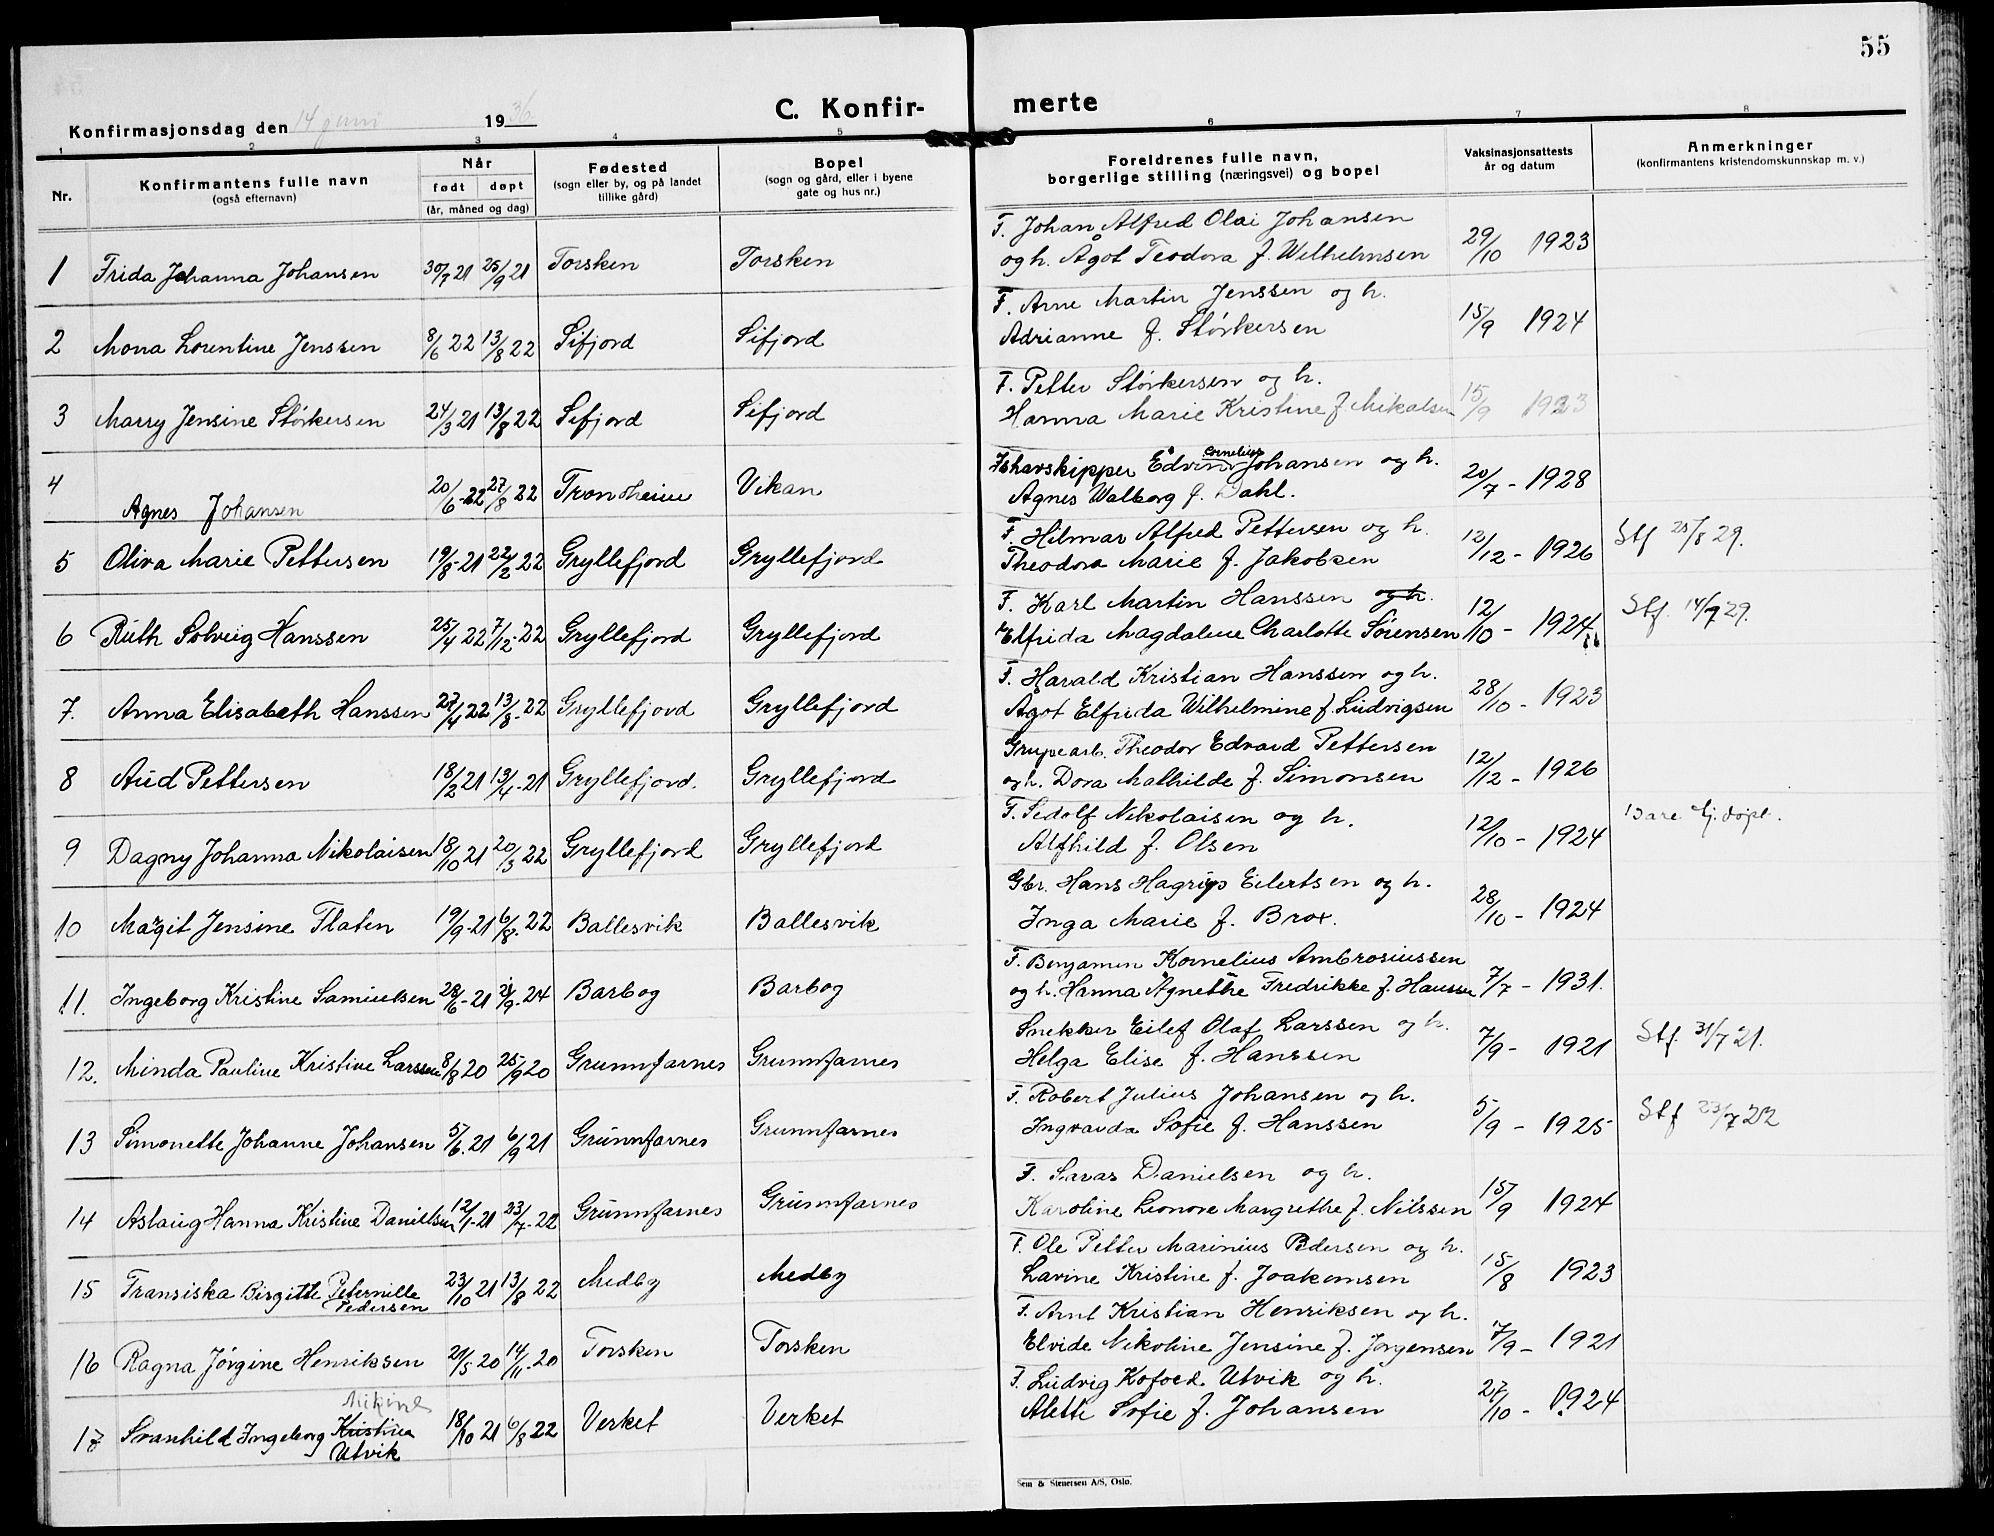 55
C. Konfir- merte
Konfirmasjonsdag den 14 juni 1936
1 2 3 4 5 6 7 8
Nr.
Konfirmantens fulle navn
(også efternavn)
Når
født døpt
(år, måned og dag)
Fødested
(sogn eller by, og på landet
tillike gård)
Bopel
(sogn og gård, eller i byene
gate og hus nr.)
Foreldrenes fulle navn,
borgerlige stilling (næringsvei) og bopel
Vaksinasjonsattests
år og datum
Anmerkninger
(konfirmantens kristendomskunnskap m. v.)
F. Johan Alfred Olai Johansen
1 Frida Johanna Johansen 30/7 21 25/9 21 Torsken Torsken og h. Ågot Teodora f. Wilhelmsen 29/10 1923
F. Arne Martin Jenssen og h.
2 Mona Lorentine Jenssen 8/6 22 13/8 22 Sifjord Sifjord Adrianne f. Størkersen 15/9 1924
F. Petter Størkersen og h.
3 Marry Jensine Størkersen 24/3 21 13/8 22 Sifjord Sifjord Hanna Marie Kristine f. Mikalsen 15/9 1923
Ishavskipper Edvin Cornelius Johansen og h.
4 Agnes Johansen 20/6-22 27/8 22 Trondheim Vikan Agnes Walborg f. Dahl. 20/7 - 1928
F. Hilmar Alfred Pettersen og h.
5 Oliva Marie Pettersen 19/8-21 22/2 22 Gryllefjord Gryllefjord Theodora Marie f. Jakobsen 12/12 - 1926 Stf 25/8 29.
F. Karl Martin Hanssen og h.
6 Ruth Solveig Hanssen 25/4 22 7/12-22 Gryllefjord Gryllefjord Elfrida Magdalene Charlotte Sørensen 12/10 - 1924 Stf. 14/7 29.
F. Harald Kristian Hanssen og h.
7. Anna Elisabeth Hanssen 27/4 22 13/8-22 Gryllefjord Gryllefjord Ågot Elfrida Wilhelmine f. Ludvigsen 28/10 - 1923
Grupearb. Theodor Edvard Pettersen
8 Aud Pettersen 18/2 21 13/4-21 Gryllefjord. Gryllefjord og h. Dora Mathilde f. Simonsen 12/12 - 1926
F. Sedolf Nikolaisen og h.
9 Dagny Johanna Nikolaisen 18/10 21 20/3 22 Gryllefjord Gryllefjord Alfhild f. Olsen 12/10 - 1924 Bare hj. døpt.
Gbr. Hans Hagrup Eilertsen og h.
10 Margit Jensine Flaten 19/9-21 6/8-22 Ballesvik Ballesvik Inga Marie f. Brox. 28/10 - 1924
F. Benjamin Kornelius Ambrosiussen
11. Ingeborg Kristine Samuelsen 28/6-21 21/9-24 Barbog Barbog og h. Hanna Agnethe Fredrikke f. Hanssen 7/7 - 1931.
Snekker Eilef Olaf Larssen og h.
12. Minda Pauline Kristine Larssen 8/8 20 25/9 20 Grunnfarnes Grunnfarnes Helga Elise f. Hanssen 7/9 - 1921 Stf. 31/7 21.
F. Robert Julius Johansen og h.
13 Simonette Johanne Johansen 5/6.21 6/9 21 Grunnfarnes Grunnfarnes Ingvarda Sofie f. Hanssen 5/9 - 1925 Stf 23/7 22
F. Savas Danielsen og h.
14 Aslaug Hanna Kristine Danielsen 12/1-21 23/7-22 Grunnfarnes Grunnfarnes Karoline Leonore Margrethe f. Nilssen 15/9 1924
F. Ole Petter Marinius Pedersen og h.
15 Fransiska Birgitte Peternille Pedersen 23/10 21 13/8 22 Medby Medby Lavine Kristine f. Joakemsen 15/8 1923
F. Arnt Kristian Henriksen og h.
16 Ragna Jørgine Henriksen 21/5 20 14/11-20 Torsken Torsken Elvide Nikoline Jensine f. Jørgensen 7/9 - 1921
F. Ludvig Kofoed Utvik og h.
17 Svanhild Ingeborg Kristina Utvik 18/10 21 6/8 22 Verket Verket Alette Sofie f. Johansen 27/10 - 1924
Sem & Stenersen A/S, Oslo.